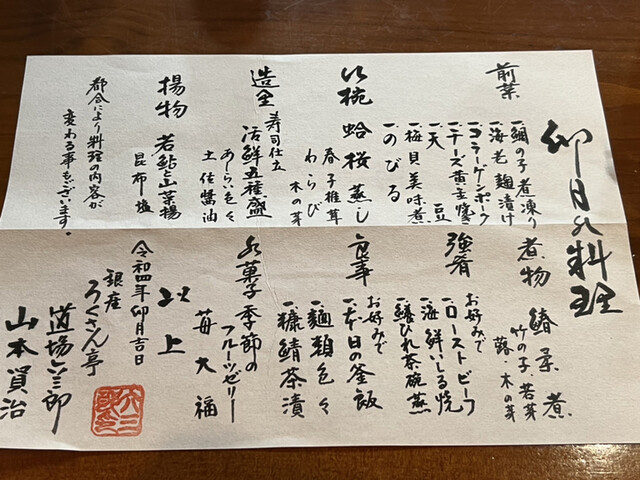 卯月の料理
前菜
一、鯛の子煮凍り
一、海老麹漬け
一、コラーゲンポーク
一、チーズ黄金焼き
一、天豆
一、梅貝美味煮
一、のびる
吸椀 蛤桜蒸し
春子椎茸
わらび
木の芽
造里 寿司仕立
活鮮五種盛
あしらい色々
土佐醬油
揚物 若鮎と山菜揚
昆布塩
都合により料理の内容が
変わる事もございます。
煮物 鰆柔煮
竹の子、若芽
蕗、木の芽
強肴
お好みで
一、ローストビーフ
一、海鮮いしる焼
一、鱶ひれ茶碗蒸
食事
お好みで
一、本日の釜飯
一、麺類色々
一、糠鯖茶漬
水菓子 季節の
フルーツゼリー
苺大福
以上
令和四年卯月吉日
銀座
ろくさん亭
道場六三郎
山本資治